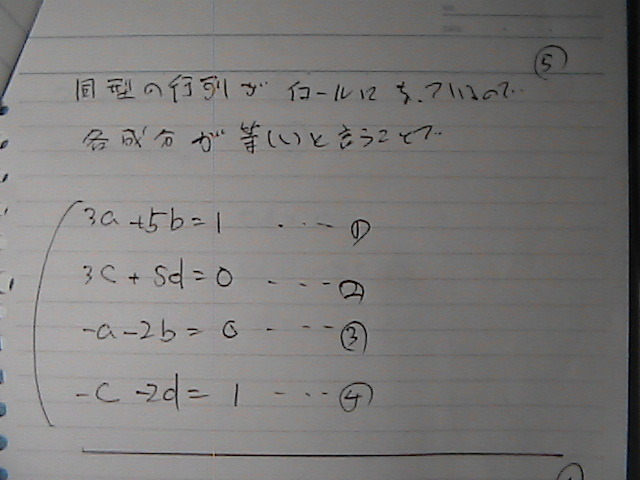 ⑤
同型の行列がイコールになっているので
各成分が等しいと言うことで
3a+5b=1 ····①
3c+5d=0 ····②
-a-2b=0 ····③
-c-2d=1 ····④